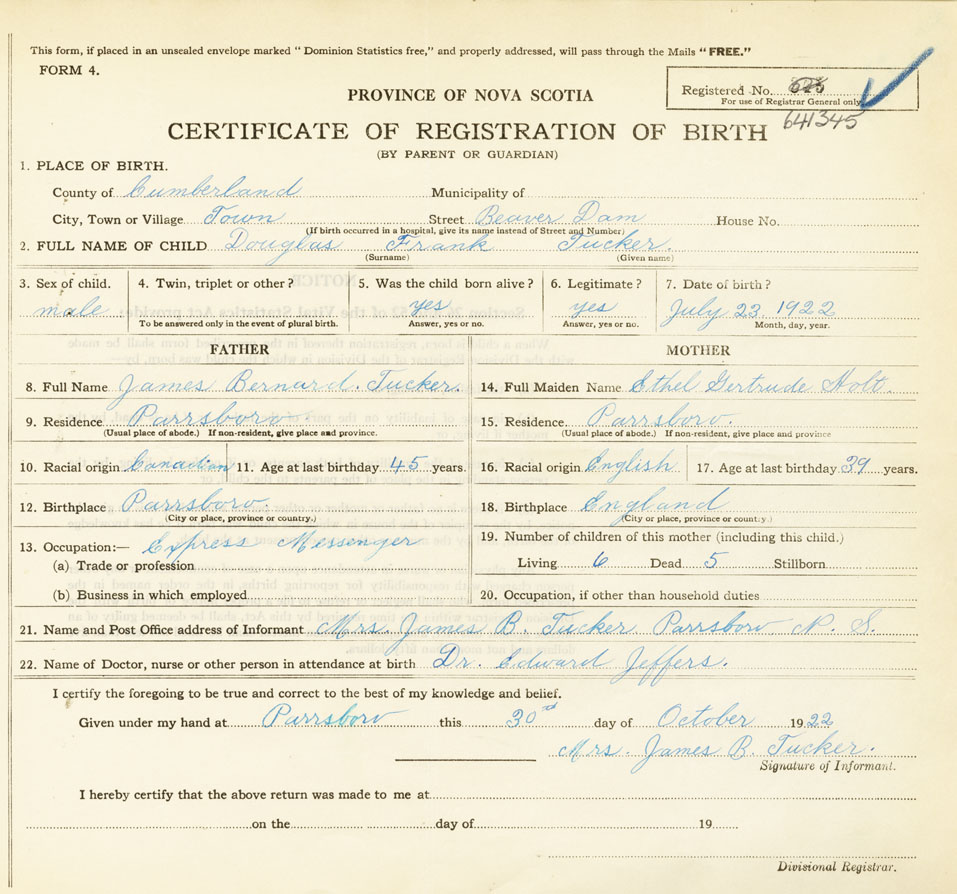 This form, if placed in an unsealed envelope marked "Dominion Statistics free," and properly addressed, will pass through the Mails "FREE."
FORM 4.
Registered No.
For use of Registrar General only
641345
PROVINCE OF NOVA SCOTIA
CERTIFICATE OF REGISTRATION OF BIRTH
(BY PARENT OR GUARDIAN)
1. PLACE OF BIRTH.
County of Cumberland Municipality of
City, Town or Village Town Street Beaver Dam House No.
(If birth occurred in a hospital, give its name instead of Street and Number)
2. FULL NAME OF CHILD Douglas Frank Tucker.
(Surname) (Given name)
3. Sex of child. 4. Twin, triplet or other? 5. Was the child born alive? 6. Legitimate? 7. Date of birth?
male yes yes July 23, 1922
To be answered only in the event of plural birth. Answer, yes or no. Answer, yes or no. Month, day, year.
FATHER MOTHER
8. Full Name James Bernard. Tucker. 14. Full Maiden Name Ethel Gertrude Holt
9. Residence Parrsboro 15. Residence Parrsboro.
(Usual place of abode.) If non-resident, give place and province. (Usual place of abode.) If non-resident, give place and province
10. Racial origin Canadian 11. Age at last birthday 45 years. 16. Racial origin English 17. Age at last birthday 39 years.
12. Birthplace Parrsboro. 18. Birthplace England
(City or place, province or country.) (City or place, province or country.)
13. Occupation:— Express Messenger 19. Number of children of this mother (including this child.)
(a) Trade or profession Living 6 Dead 5 Stillborn
(b) Business in which employed 20. Occupation, if other than household duties
21. Name and Post Office address of Informant Mrs. James B. Tucker Parrsboro N. S.
22. Name of Doctor, nurse or other person in attendance at birth Dr. Edward Jeffers.
I certify the foregoing to be true and correct to the best of my knowledge and belief.
Given under my hand at Parrsboro this 30 day of October 1922
Mrs. James B. Tucker.
Signature of Informant.
I hereby certify that the above return was made to me at
on the day of 19
Divisional Registrar.